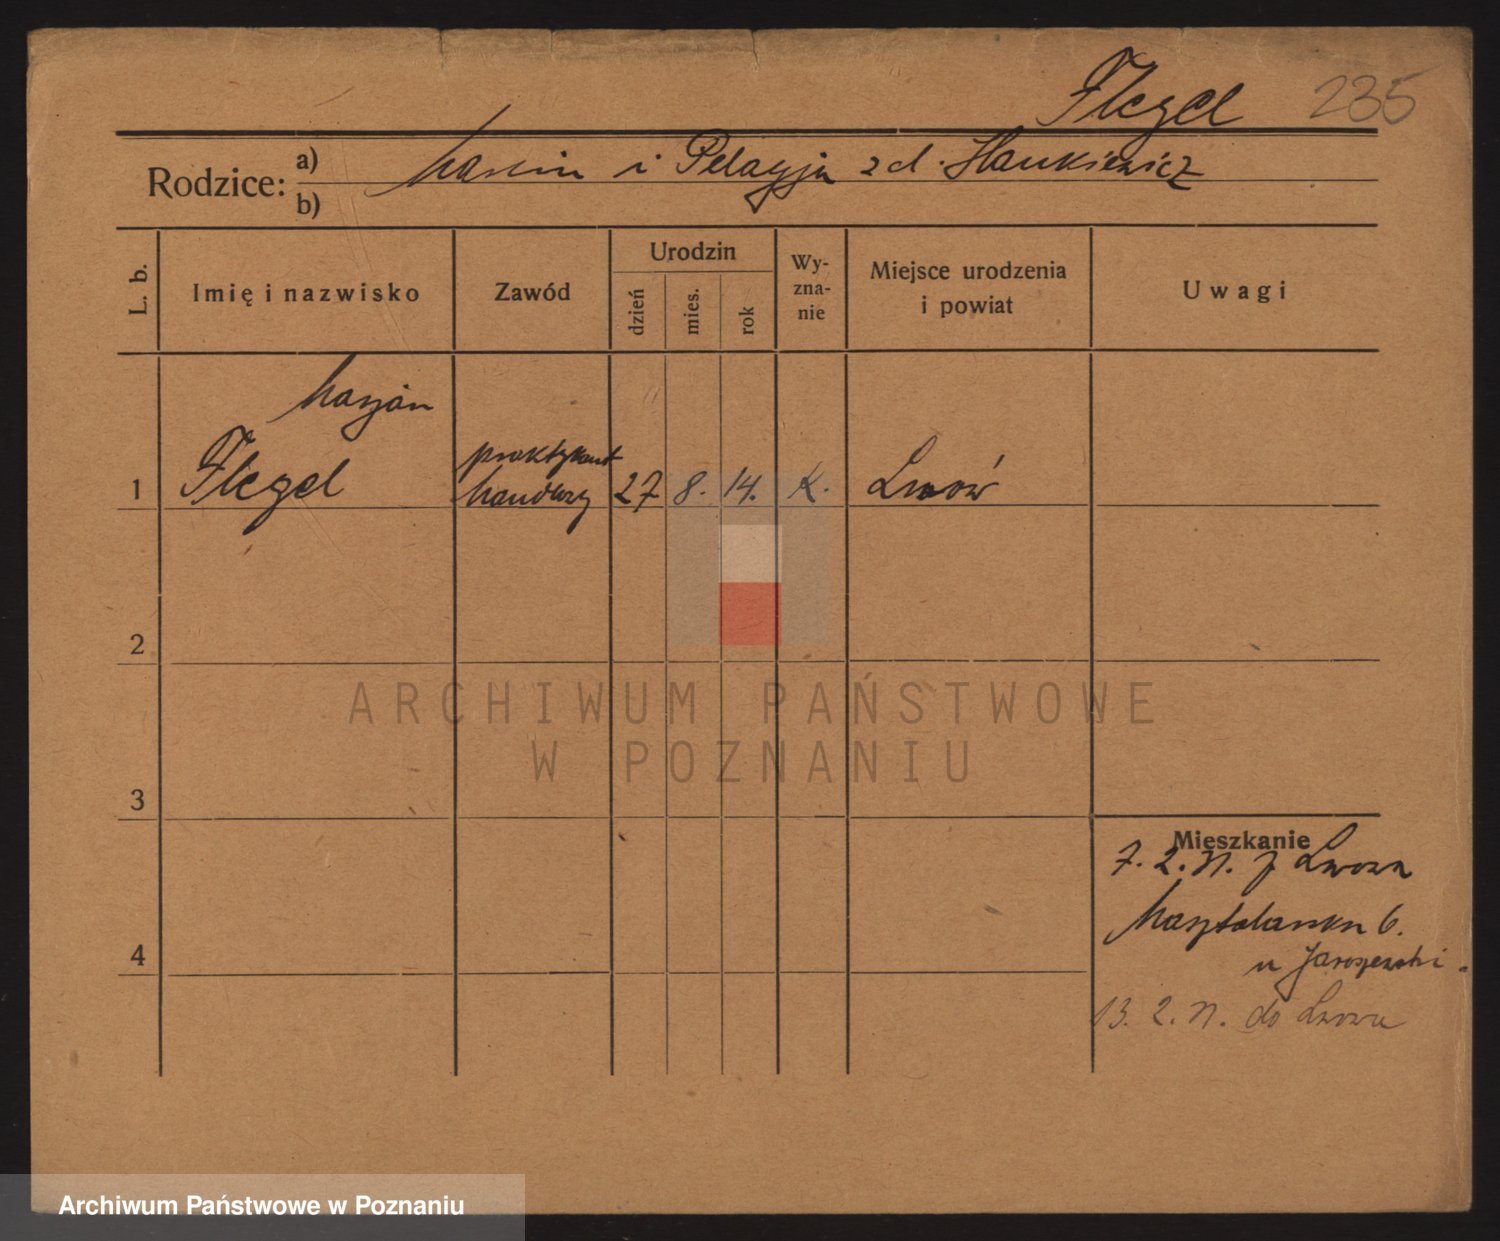 Flegel 235
Rodzice: a) Marcin i Pelagja z d. Hankiewicz
b)
L. b.
Imię i nazwisko
Zawód
Urodzin
dzień
mies.
rok
Wy-
zna-
nie
Miejsce urodzenia
i powiat
Uwagi
Marjan
1 Flegel praktykant handlowy 27 8. 14. K. Lwów
2
3
4
Mieszkanie
7. 2. z Lwowa
Masztalarska 6.
u Jaroszewski.
13. 2. do Lwowa
ARCHIWUM PAŃSTWOWE
W POZNANIU
Archiwum Państwowe w Poznaniu